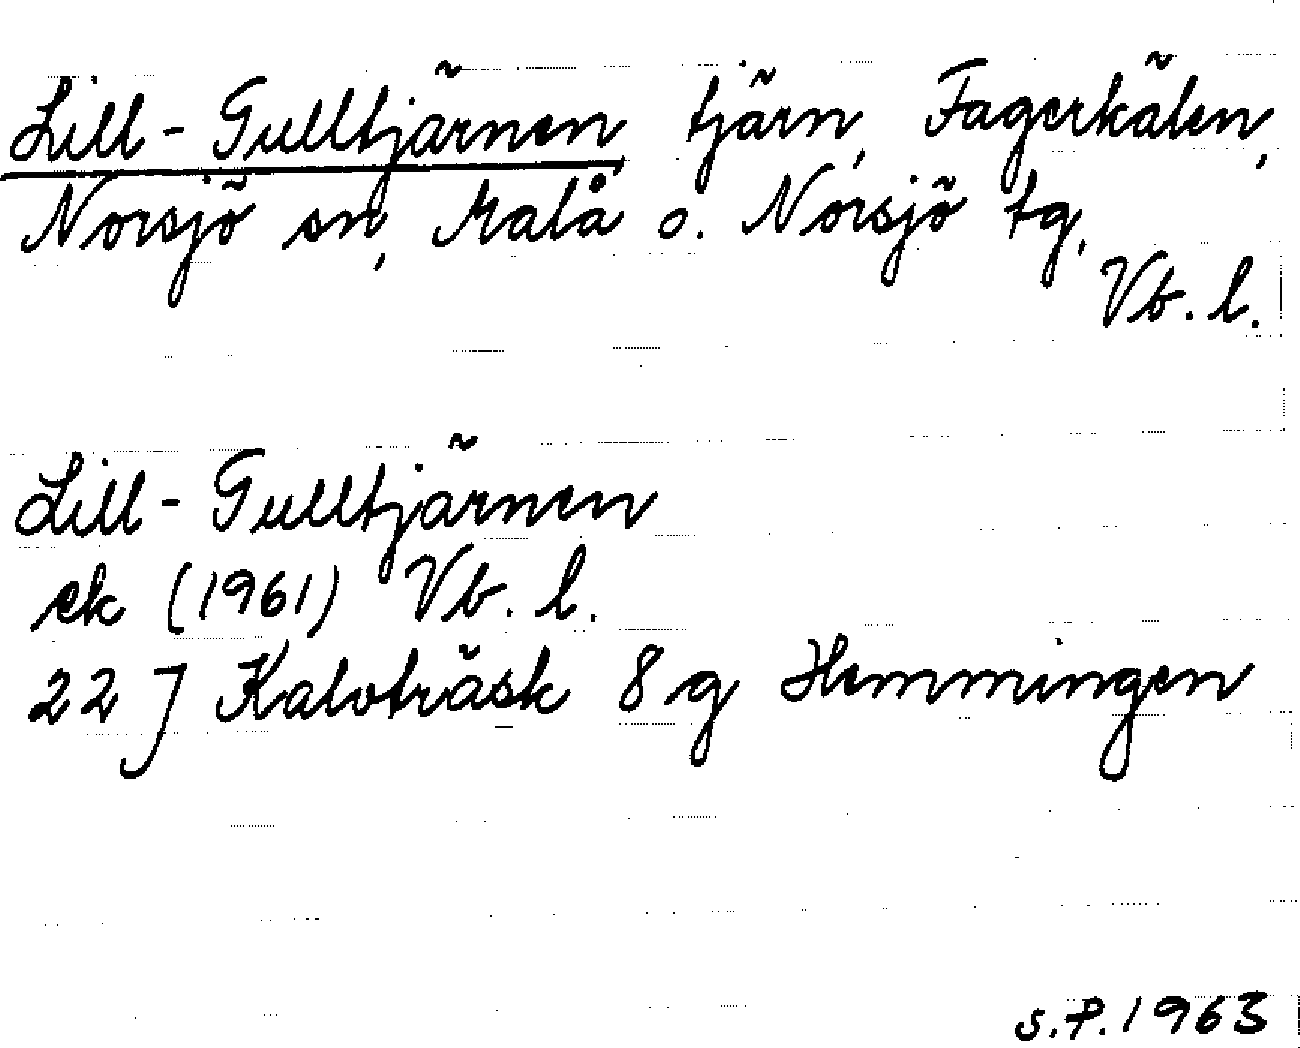 Lill-Gulltjärnen, tjärn, Fagerkälen,
Norsjö sn, Malå o. Norsjö tg,
Vb. l.
Lill-Gulltjärnen
ek (1961) Vb. l.
22 J Kalvträsk 8 g Hemmingen
S.P. 1963